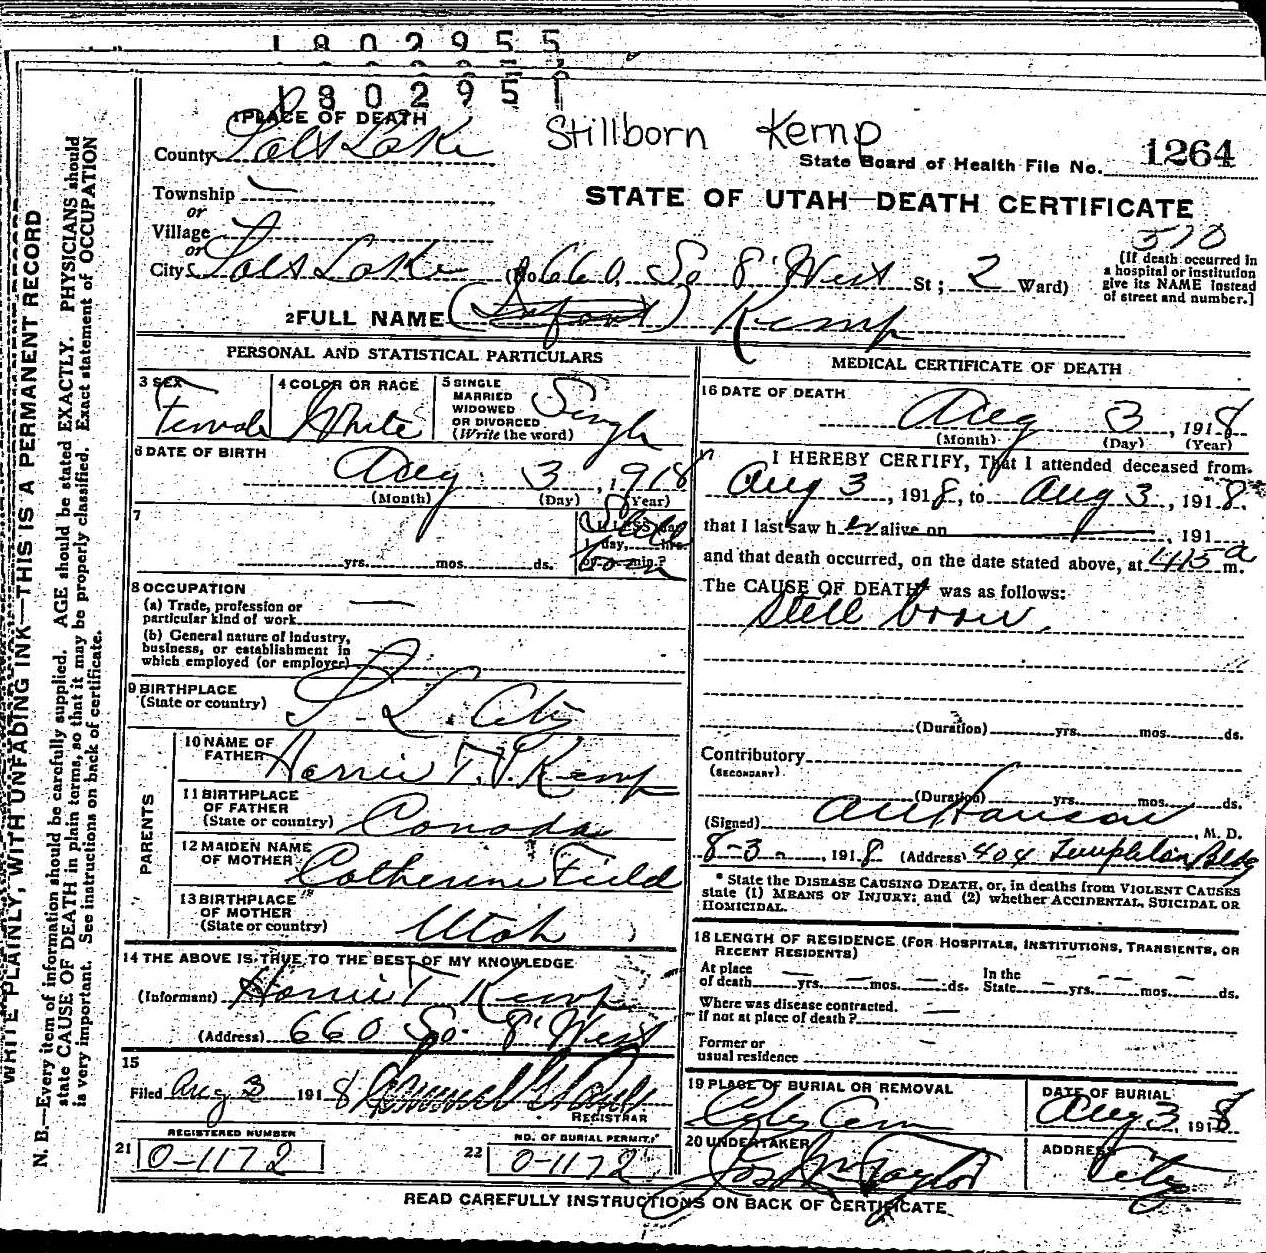 1802955
1802951
Stillborn Kemp
1 PLACE OF DEATH
County Salt Lake
State Board of Health File No. 1264
Township
or
Village
or
City Salt Lake (No. 660 So 8' West St; 2 Ward)
STATE OF UTAH—DEATH CERTIFICATE
510
[If death occurred in a hospital or institution give its NAME instead of street and number.]
2 FULL NAME (Infant) Kemp
PERSONAL AND STATISTICAL PARTICULARS
3 SEX
Female
4 COLOR OR RACE
White
5 SINGLE
MARRIED
WIDOWED
OR DIVORCED
(Write the word)
Single
6 DATE OF BIRTH
Aug 3, 1918
(Month) (Day) (Year)
7
yrs. mos. ds.
If LESS than
1 day, hrs.
or min.?
Still
born
8 OCCUPATION
(a) Trade, profession or
particular kind of work
(b) General nature of industry,
business, or establishment in
which employed (or employer)
9 BIRTHPLACE
(State or country)
S. L. City
PARENTS
10 NAME OF
FATHER
Harrie T. Kemp
11 BIRTHPLACE
OF FATHER
(State or country)
Canada
12 MAIDEN NAME
OF MOTHER
Catherine Field
13 BIRTHPLACE
OF MOTHER
(State or country)
Utah
14 THE ABOVE IS TRUE TO THE BEST OF MY KNOWLEDGE
(Informant) Harrie T. Kemp
(Address) 660 So. 8' West
15
Filed Aug 3 1918
REGISTRAR
REGISTERED NUMBER
21 0-1172
NO. OF BURIAL PERMIT
22 0-1172
MEDICAL CERTIFICATE OF DEATH
16 DATE OF DEATH
Aug 3, 1918
(Month) (Day) (Year)
I HEREBY CERTIFY, That I attended deceased from
Aug 3, 1918, to Aug 3, 1918.
that I last saw her alive on 191
and that death occurred, on the date stated above, at 4:15 a m.
The CAUSE OF DEATH* was as follows:
Still born.
(Duration) yrs. mos. ds.
Contributory
(SECONDARY)
(Duration) yrs. mos. ds.
(Signed) Hanson, M. D.
8-3, 1918 (Address) 404 Templeton Bldg
* State the DISEASE CAUSING DEATH, or, in deaths from VIOLENT CAUSES
state (1) MEANS OF INJURY; and (2) whether ACCIDENTAL, SUICIDAL OR
HOMICIDAL.
18 LENGTH OF RESIDENCE (FOR HOSPITALS, INSTITUTIONS, TRANSIENTS, OR
RECENT RESIDENTS)
At place
of death yrs. mos. ds.
In the
State yrs. mos. ds.
Where was disease contracted.
if not at place of death?
Former or
usual residence
19 PLACE OF BURIAL OR REMOVAL
City Cem
DATE OF BURIAL
Aug 3, 1918
20 UNDERTAKER
Jos Wm Taylor
ADDRESS
City
READ CAREFULLY INSTRUCTIONS ON BACK OF CERTIFICATE
WRITE PLAINLY, WITH UNFADING INK—THIS IS A PERMANENT RECORD
N. B.—Every item of information should be carefully supplied. AGE should be stated EXACTLY. PHYSICIANS should
state CAUSE OF DEATH in plain terms, so that it may be properly classified. Exact statement of OCCUPATION
is very important. See instructions on back of certificate.